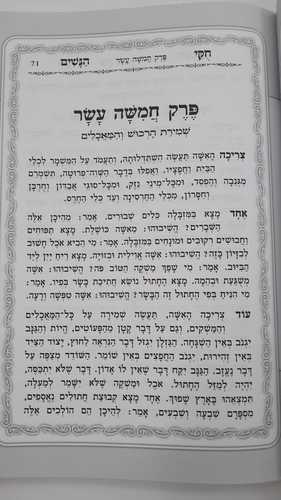 חֻקֵּי
פֶּרֶק חֲמִשָּׁה עָשָׂר
הַנָּשִׁים
71
פֶּרֶק חֲמִשָּׁה עָשָׂר
שְׁמִירַת הָרְכוּשׁ וְהַמַּאֲכָלִים
צְרִיכָה הָאִשָּׁה תַּעֲשֶׂה הִשְׁתַּדְּלוּתָהּ, וְתַעֲמֹד עַל הַמִּשְׁמָר לִכְלֵי
הַבַּיִת וַחֲפָצָיו. וַאֲפִלּוּ בְּדָבָר הַשָּׁוֶה־פְּרוּטָה, תִּשְׁמְרֵם
מִגְּנֵבָה וְהֶפְסֵד, וּמִכָּל־מִינֵי נֶזֶק, וּמִכָּל־סוּגֵי אֲבַדּוֹן וְחֻרְבָּן
וְחִסָּרוֹן, מִכְּלֵי הַחַרְסִינָה וְעַד כְּלֵי הַחֶרֶס.
אֶחָד מָצָא בַּמִּזְבָּלָה כֵּלִים שְׁבוּרִים. אָמַר: מֵהֵיכָן אֵלֶּה
הַשְּׁבָרִים? הֱשִׁיבוּהוּ: מֵאִשָּׁה כּוֹשֶׁלֶת. מָצָא תַּפּוּחִים
וַחֲבוּשִׁים רְקוּבִים וּמֻנָּחִים בַּמִּזְבָּלָה. אָמַר: מִי הֵבִיא אֹכֶל חָשׁוּב
לְבִזָּיוֹן כָּזֶה? הֱשִׁיבוּהוּ: אִשָּׁה אֱוִילִית וּבְזוּיָה. מָצָא רֵיחַ יַיִן לְיַד
הַבִּיּוּב. אָמַר: מִי שָׁפַךְ מַשְׁקֶה הַטּוֹב פֹּה? הֱשִׁיבוּהוּ: אִשָּׁה
מְשֻׁגַּעַת וּבְהֵמָה. מָצָא הֶחָתוּל נוֹשֵׂא חֲתִיכַת בָּשָׂר בְּפִיו. אָמַר:
מִי הִנִּיחַ בְּפִי הֶחָתוּל זֶה הַבָּשָׂר? הֱשִׁיבוּהוּ: אִשָּׁה טִפְּשָׁה וְרָעָה.
עוֹד צְרִיכָה הָאִשָּׁה, תַּעֲשֶׂה שְׁמִירָה עַל כָּל־הַמַּאֲכָלִים
וְהַמַּשְׁקִים, וְגַם עַל דָּבָר קָטָן מֵהַפָּעוּטִים, הֱיוֹת וְהַגַּנָּב
יִגְנֹב בְּאֵין הַשְׁגָּחָה. הַגַּזְלָן יִגְזֹל דָּבָר הַנִּרְאֶה לַחוּץ, יָצוּד הַצַּיָּד
בְּאֵין זְהִירוּת, יִגְנֹב הַחֲפָצִים בְּאֵין שׁוֹמֵר. הַשּׁוֹדֵד מְצַפֶּה עַל
דָּבָר נֶעֱזָב. הַגַּנָּב יִקַּח דָּבָר שֶׁאֵין לוֹ אָדוֹן. דָּבָר שֶׁלֹּא יִתְכַּסֶּה,
יִהְיֶה לְמַזַּל הֶחָתוּל. אֹכֶל וּמַשְׁקֶה שֶׁלֹּא יִשָּׁמֵר לְמַעְלָה,
תִּמְצָאֵהוּ בָּאָרֶץ שָׁפוּךְ. אֶחָד מָצָא קְבוּצַת חֲתוּלִים נֶאֱסָפִים,
מִסְפָּרָם שִׁבְעָה וְשִׁבְעִים, אָמַר: לְהֵיכָן הֵם הוֹלְכִים אֵלֶּה